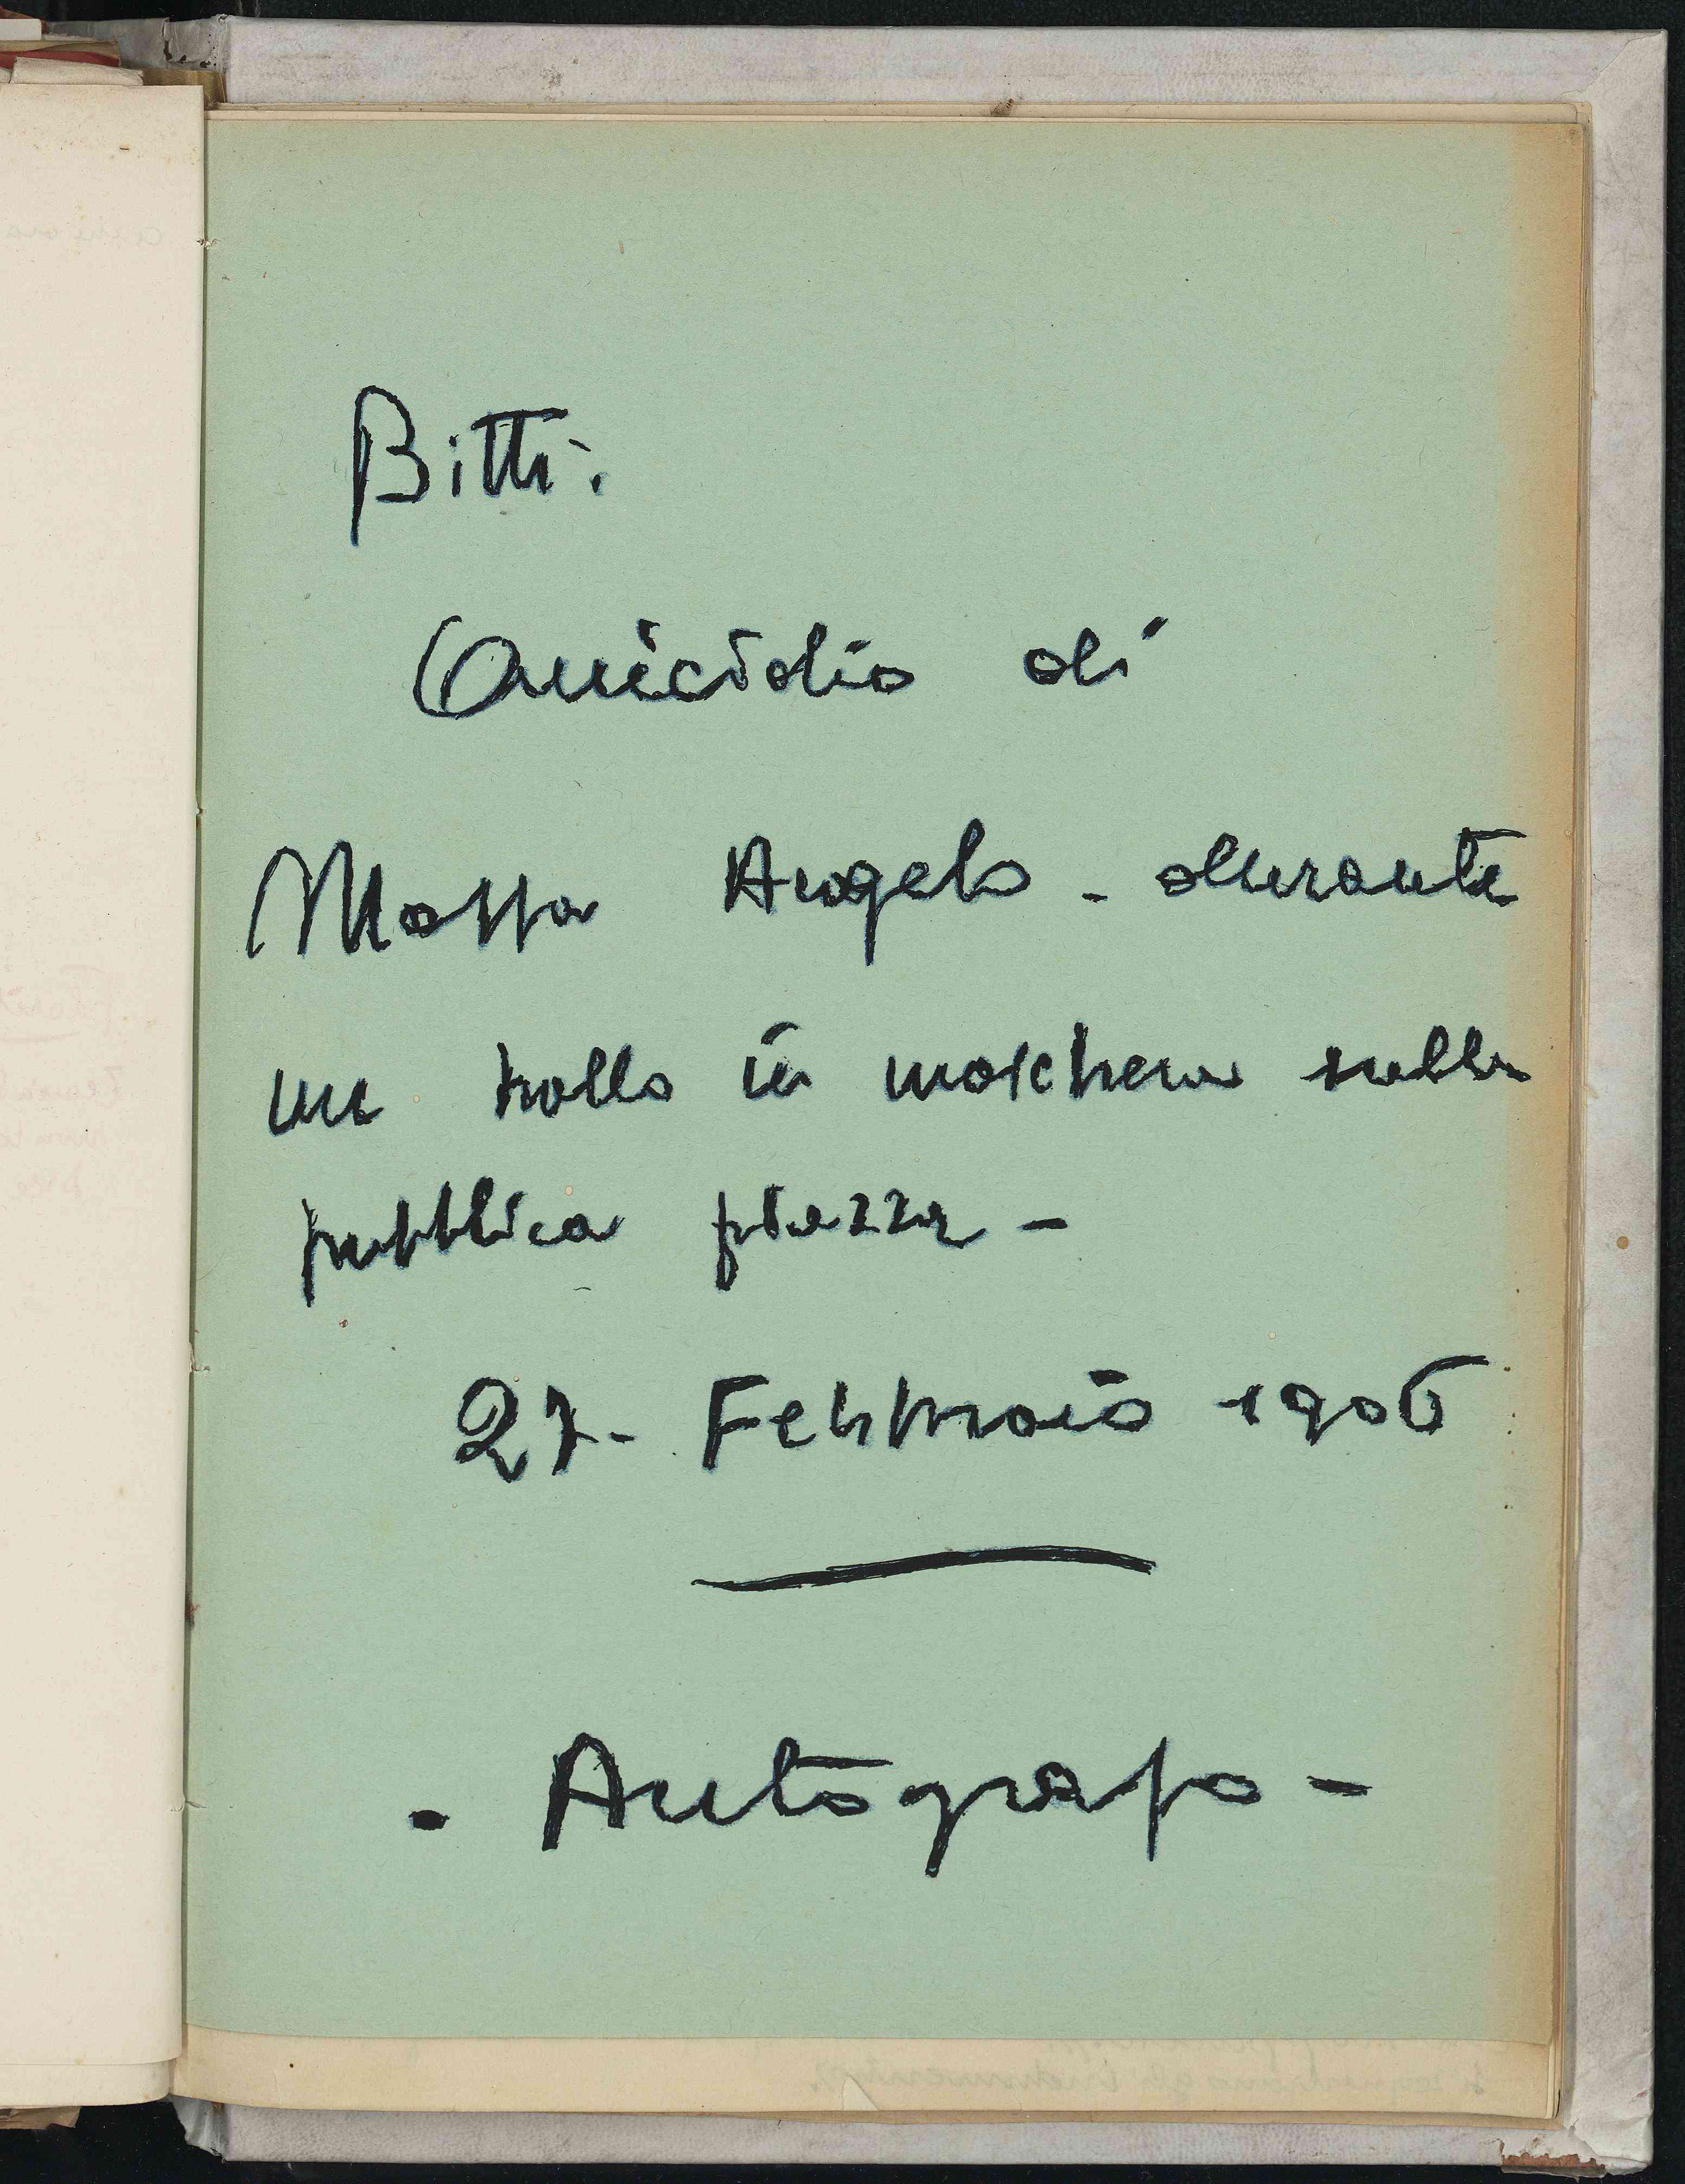 Bitti.
Omicidio di
Mossa Angelo - durante
un ballo in maschera sulla
pubblica piazza -
27 - Febbraio 1906
- Autografo -